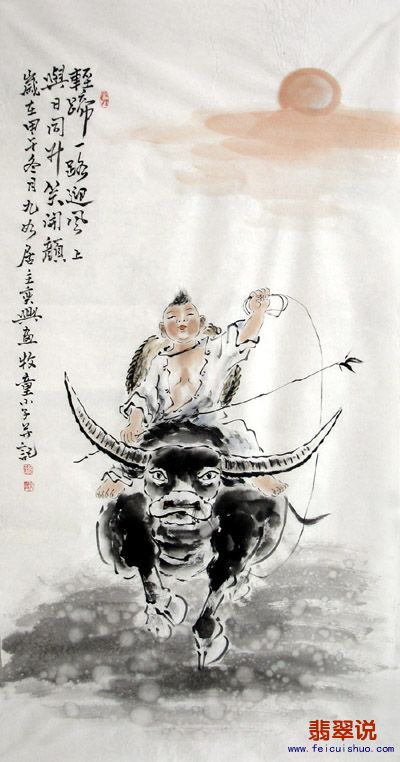 輕蹄一路迎风上
與日同升笑開顔
歲在甲午冬月九如居主興画牧童小子并記
翡翠说
www.feicuishuo.com